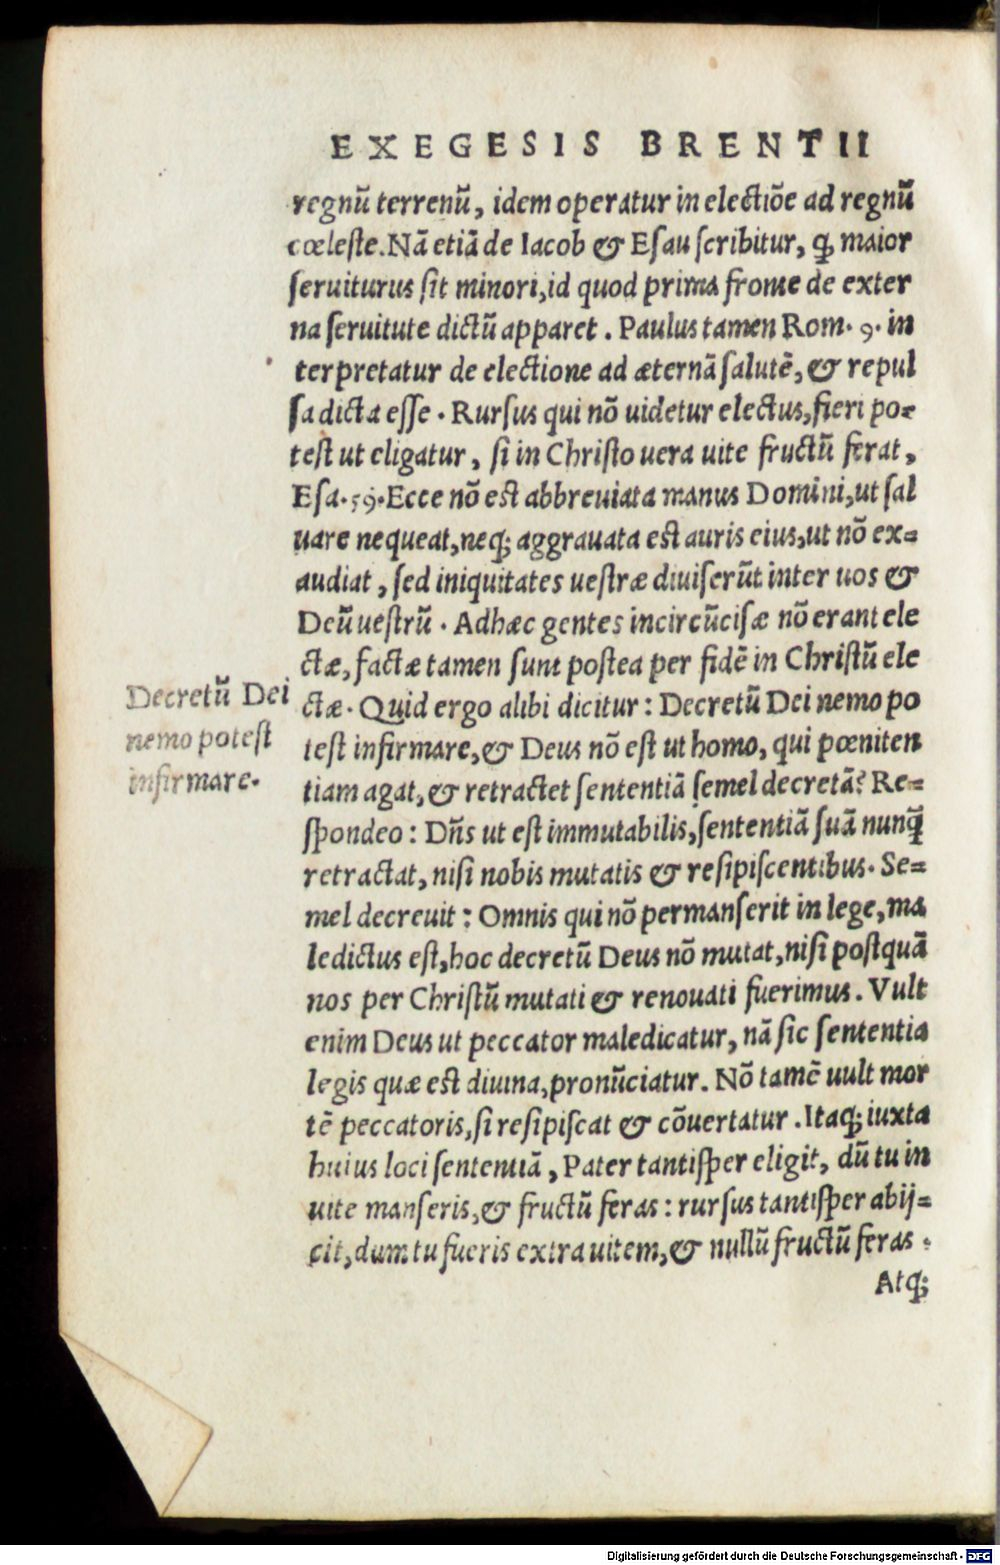 EXEGESIS BRENTII
regnũ terrenũ, idem operatur in electiõe ad regnũ
cœleste. Nã etiã de Iacob & Esau scribitur, ꝙ maior
seruiturus sit minori, id quod prima fronte de exter
na seruitute dictũ apparet. Paulus tamen Rom. 9. in
terpretatur de electione ad æternã salutẽ, & repul
sa dicta esse. Rursus qui nõ uidetur electus, fieri po=
test ut eligatur, si in Christo uera uite fructũ ferat,
Esa. 59. Ecce nõ est abbreuiata manus Domini, ut sal
uare nequeat, neqꝫ aggrauata est auris eius, ut nõ ex=
audiat, sed iniquitates uestræ diuiserũt inter uos &
Deũ uestrũ. Adhæc gentes incircũcisæ nõ erant ele
ctæ, factæ tamen sunt postea per fidẽ in Christũ ele
Decretũ Dei
nemo potest
infirmare.
ctæ. Quid ergo alibi dicitur: Decretũ Dei nemo po
test infirmare, & Deus nõ est ut homo, qui pœniten
tiam agat, & retractet sententiã semel decretã? Re=
spondeo: Dñs ut est immutabilis, sententiã suã nunꝗ̃
retractat, nisi nobis mutatis & resipiscentibus. Se=
mel decreuit: Omnis qui nõ permanserit in lege, ma
ledictus est, hoc decretũ Deus nõ mutat, nisi postquã
nos per Christũ mutati & renouati fuerimus. Vult
enim Deus ut peccator maledicatur, nã sic sententia
legis quæ est diuina, pronũciatur. Nõ tamẽ uult mor
tẽ peccatoris, si resipiscat & cõuertatur. Itaqꝫ iuxta
huius loci sententiã, Pater tantisper eligit, dũ tu in
uite manseris, & fructũ feras: rursus tantisper abij=
cit, dum tu fueris extra uitem, & nullũ fructũ feras.
Atqꝫ
Digitalisierung gefördert durch die Deutsche Forschungsgemeinschaft - DFG